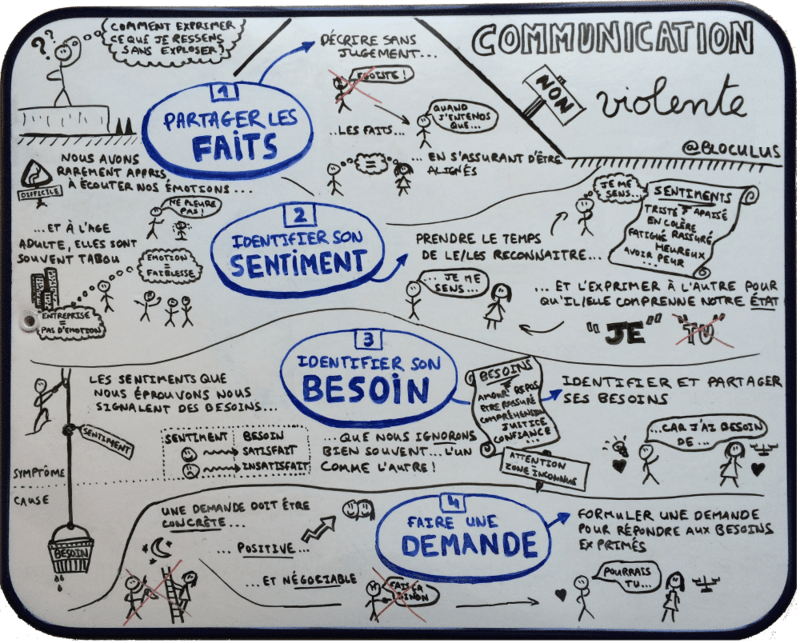 COMMUNICATION
NON
violente
@BLOCULUS
COMMENT EXPRIMER
CE QUE JE RESSENS
SANS EXPLOSER?
??
1
PARTAGER LES
FAITS
DÉCRIRE SANS
JUGEMENT...
EGOÏSTE!
..LES FAITS...
QUAND
J'ENTENDS
QUE...
=
... EN S'ASSURANT D'ÊTRE
ALIGNÉS
NOUS AVONS
RAREMENT APPRIS
À ÉCOUTER NOS ÉMOTIONS...
DIFFICILE
NE PLEURE
PAS!
...ET À L'AGE
ADULTE, ELLES SONT
SOUVENT TABOU
EMOTION
=
FAIBLESSE
ENTREPRISE
=
PAS D'ÉMOTION
2
IDENTIFIER SON
SENTIMENT
PRENDRE LE TEMPS
DE LE/LES RECONNAITRE...
JE ME
SENS...
SENTIMENTS
TRISTE APAISÉ
EN COLÈRE
FATIGUÉ RASSURÉ
HEUREUX
AVOIR PEUR
...
... JE ME
SENS...
... ET L'EXPRIMER À L'AUTRE POUR
QU'IL/ELLE COMPRENNE NOTRE ÉTAT
"JE" "TU"
3
IDENTIFIER SON
BESOIN
LES SENTIMENTS QUE
NOUS ÉPROUVONS NOUS
SIGNALENT DES BESOINS...
SENTIMENT
SYMPTÔME
CAUSE
BESOIN
SENTIMENT BESOIN
SATISFAIT
INSATISFAIT
...QUE NOUS IGNORONS
BIEN SOUVENT...L'UN
COMME L'AUTRE!
BESOINS
AMOUR REPOS
ÊTRE RASSURÉ
COMPRÉHENSION
JUSTICE
CONFIANCE...
ATTENTION
ZONE INCONNUE
IDENTIFIER ET PARTAGER
SES BESOINS
...CAR J'AI BESOIN
DE...
4
FAIRE UNE
DEMANDE
UNE DEMANDE DOIT ÊTRE
CONCRÈTE...
... POSITIVE...
...ET NÉGOCIABLE
FAIS ÇA
SINON
FORMULER UNE DEMANDE
POUR RÉPONDRE AUX BESOINS
EXPRIMÉS
POURRAIS
TU...